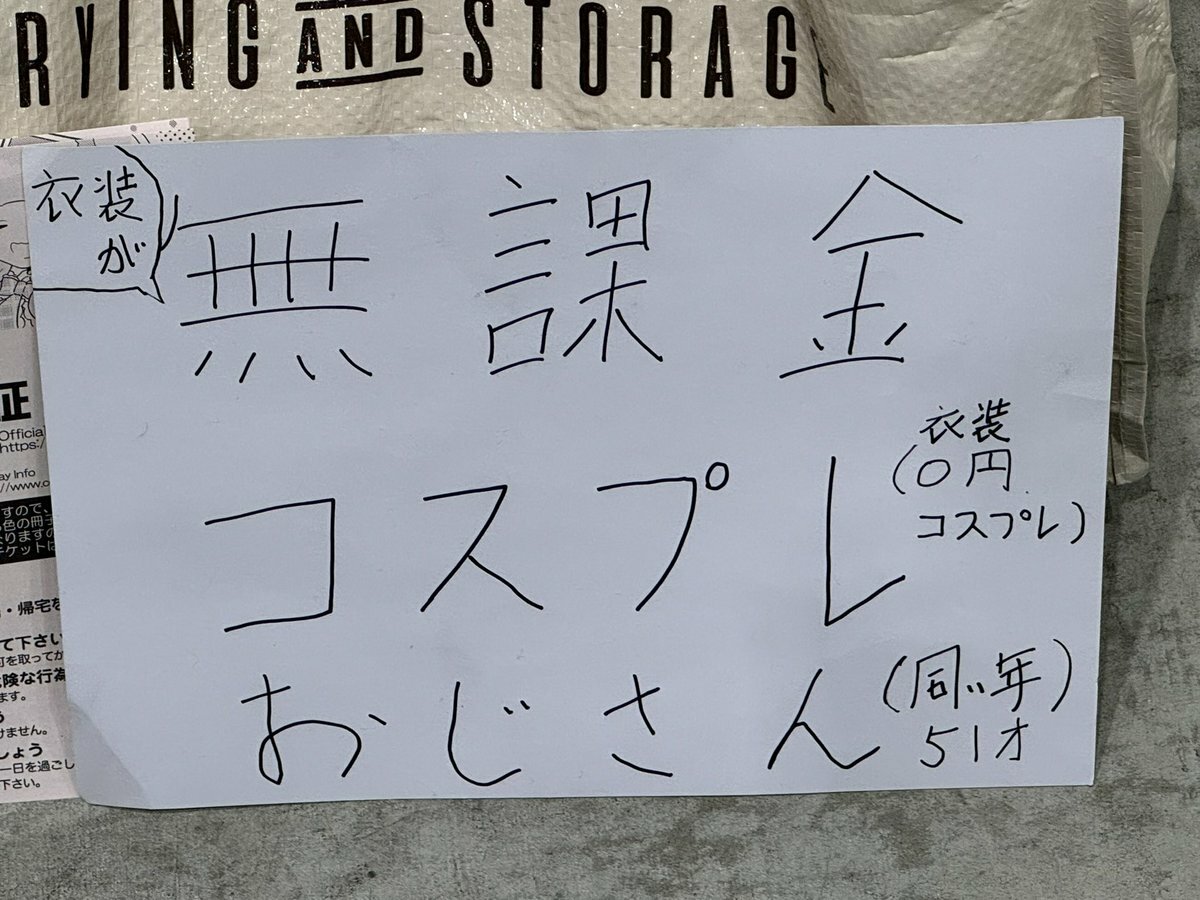 RYING AND STORAGE
衣装
が
無課金
コスプレ
(衣装
0円
コスプレ)
おじさん
(同い年)
51才
正
Official
https:/
ay Info
//www.o
すので、
色の冊子
なりますの
チケットは
・帰宅を
て下さい
可を取ってか
険な行為
ます。
う
けません。
しょう
一日を過ごし
下さい。